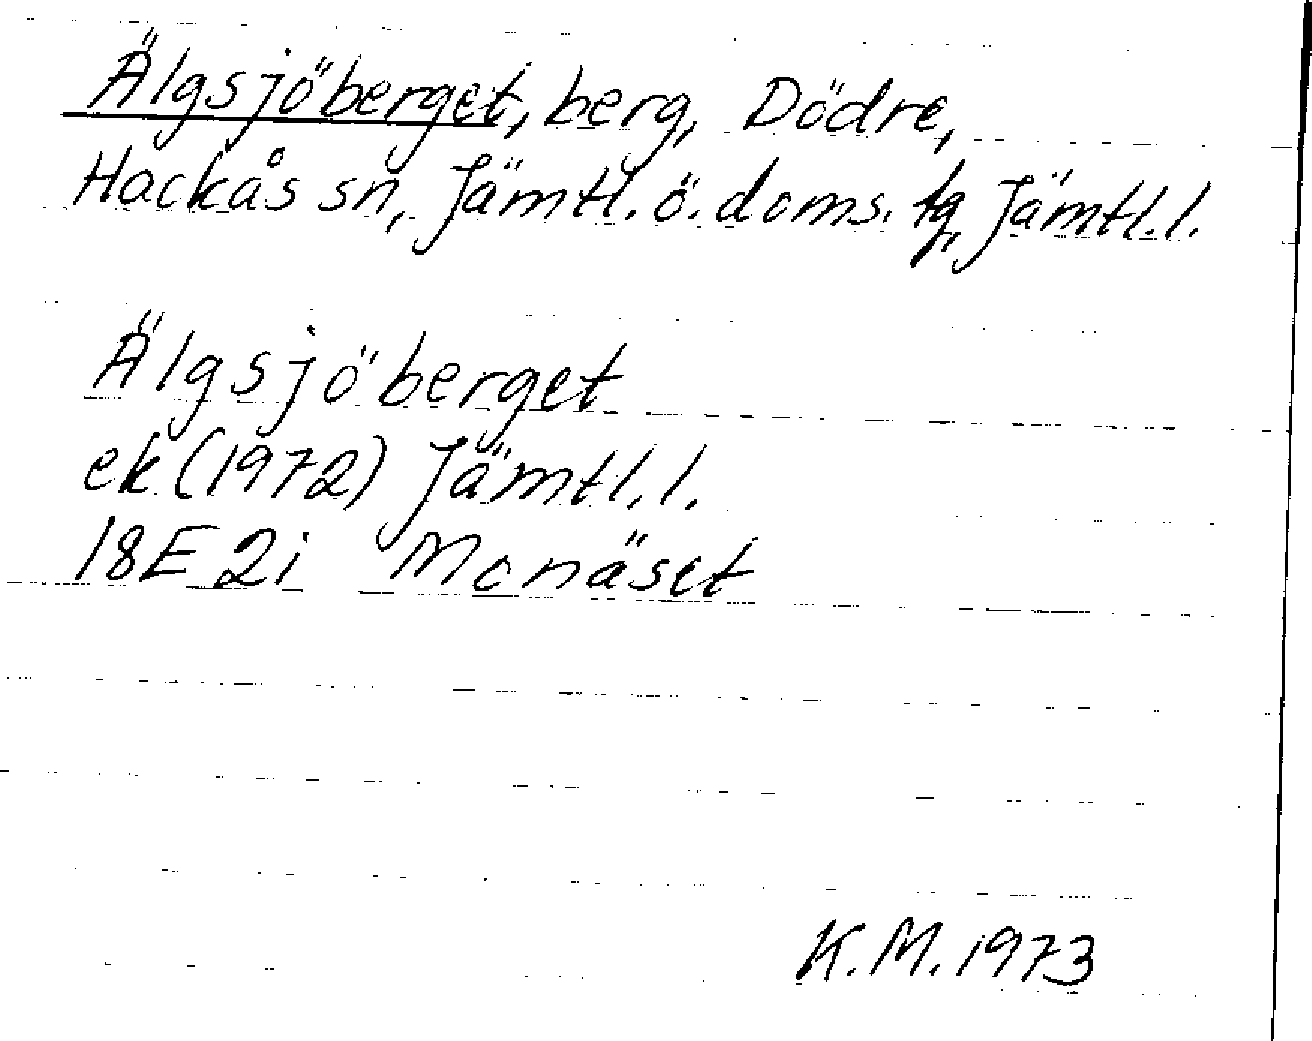 Älgsjöberget, berg, Dödre,
Hackås sn, Jämtl. ö. doms. tg, Jämtl. l.
Älgsjöberget
ek (1972) Jämtl. l.
18E 2i Monäset
K.M. 1973